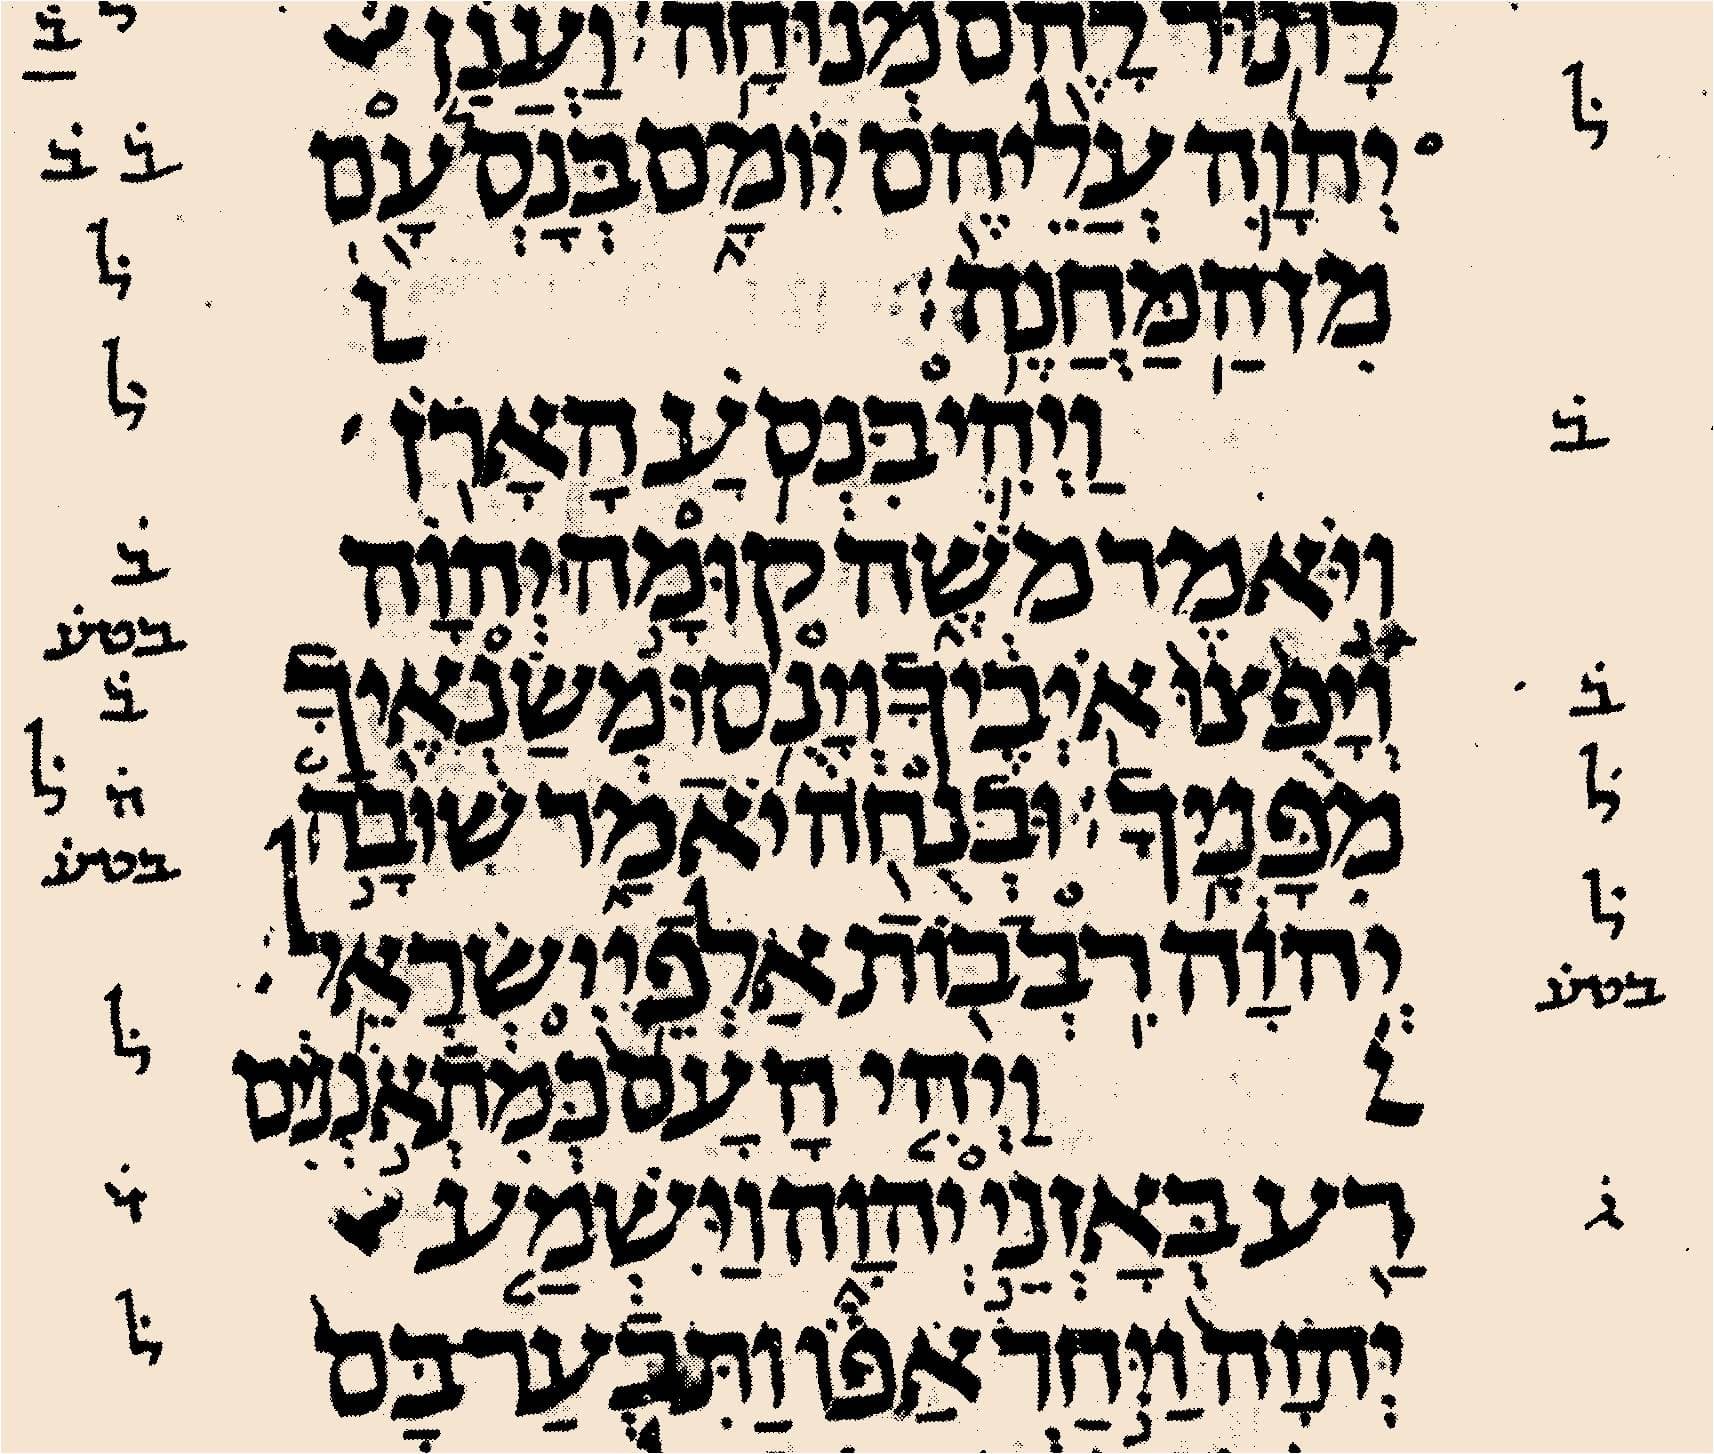 ל̇
ב̇
ב̇
ל̇
ל̇
בטע̇
ג̇
לָתוּר לָהֶם מְנוּחָה׃ וַעֲנַן
יְהוָה עֲלֵיהֶם יוֹמָם בְּנָסְעָם
מִן הַמַּחֲנֶה׃ ׆
וַיְהִי בִּנְסֹעַ הָאָרֹן
וַיֹּאמֶר מֹשֶׁה קוּמָה יְהוָה
וְיָפֻצוּ אֹיְבֶיךָ וְיָנֻסוּ מְשַׂנְאֶיךָ
מִפָּנֶיךָ׃ וּבְנֻחֹה יֹאמַר שׁוּבָה
יְהוָה רִבְבוֹת אַלְפֵי יִשְׂרָאֵל׃
׆ וַיְהִי הָעָם כְּמִתְאֹנְנִים
רַע בְּאָזְנֵי יְהוָה וַיִּשְׁמַע
יְהוָה וַיִּחַר אַפּוֹ וַתִּבְעַר בָּם
ל̇ ב̇
ב̇ ב̇
ל̇
ל̇
ב̇
בטע̇
ב̇
ה̇ ל̇
בטע̇
ל̇
י̇
ל̇